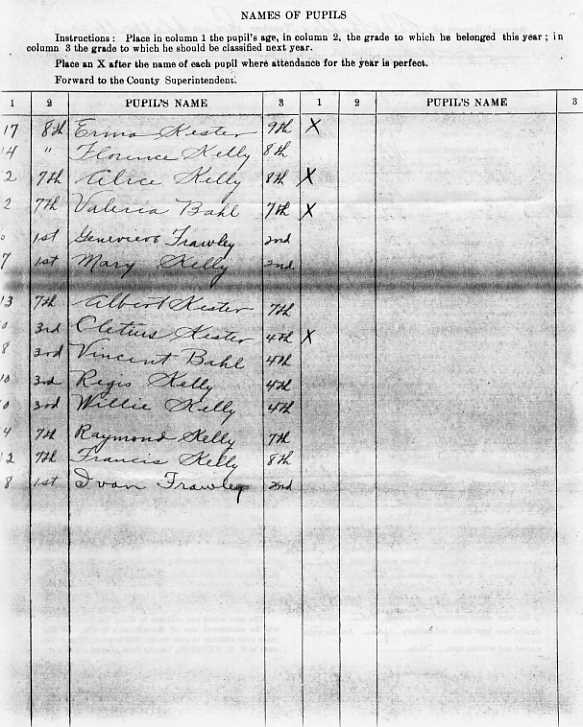 NAMES OF PUPILS
Instructions: Place in column 1 the pupil's age, in column 2, the grade to which he belonged this year; in
column 3 the grade to which he should be classified next year.
Place an X after the name of each pupil where attendance for the year is perfect.
Forward to the County Superintendent.
1 2 PUPIL'S NAME 3 1 2 PUPIL'S NAME 3
17 8th Erma Kester 9th X
14 " Florence Kelly 8th
2 7th Alice Kelly 8th X
2 7th Valeria Bahl 7th X
1st Genevieve Frawley 2nd
7 1st Mary Kelly 2nd.
13 7th Albert Kester 7th
0 3rd Cletus Kester 4th X
8 3rd Vincent Bahl 4th
10 3rd Regis Kelly 4th
0 3rd Willie Kelly 4th
4 7th Raymond Kelly 7th
12 7th Francis Kelly 8th
8 1st Ivan Frawley 2nd